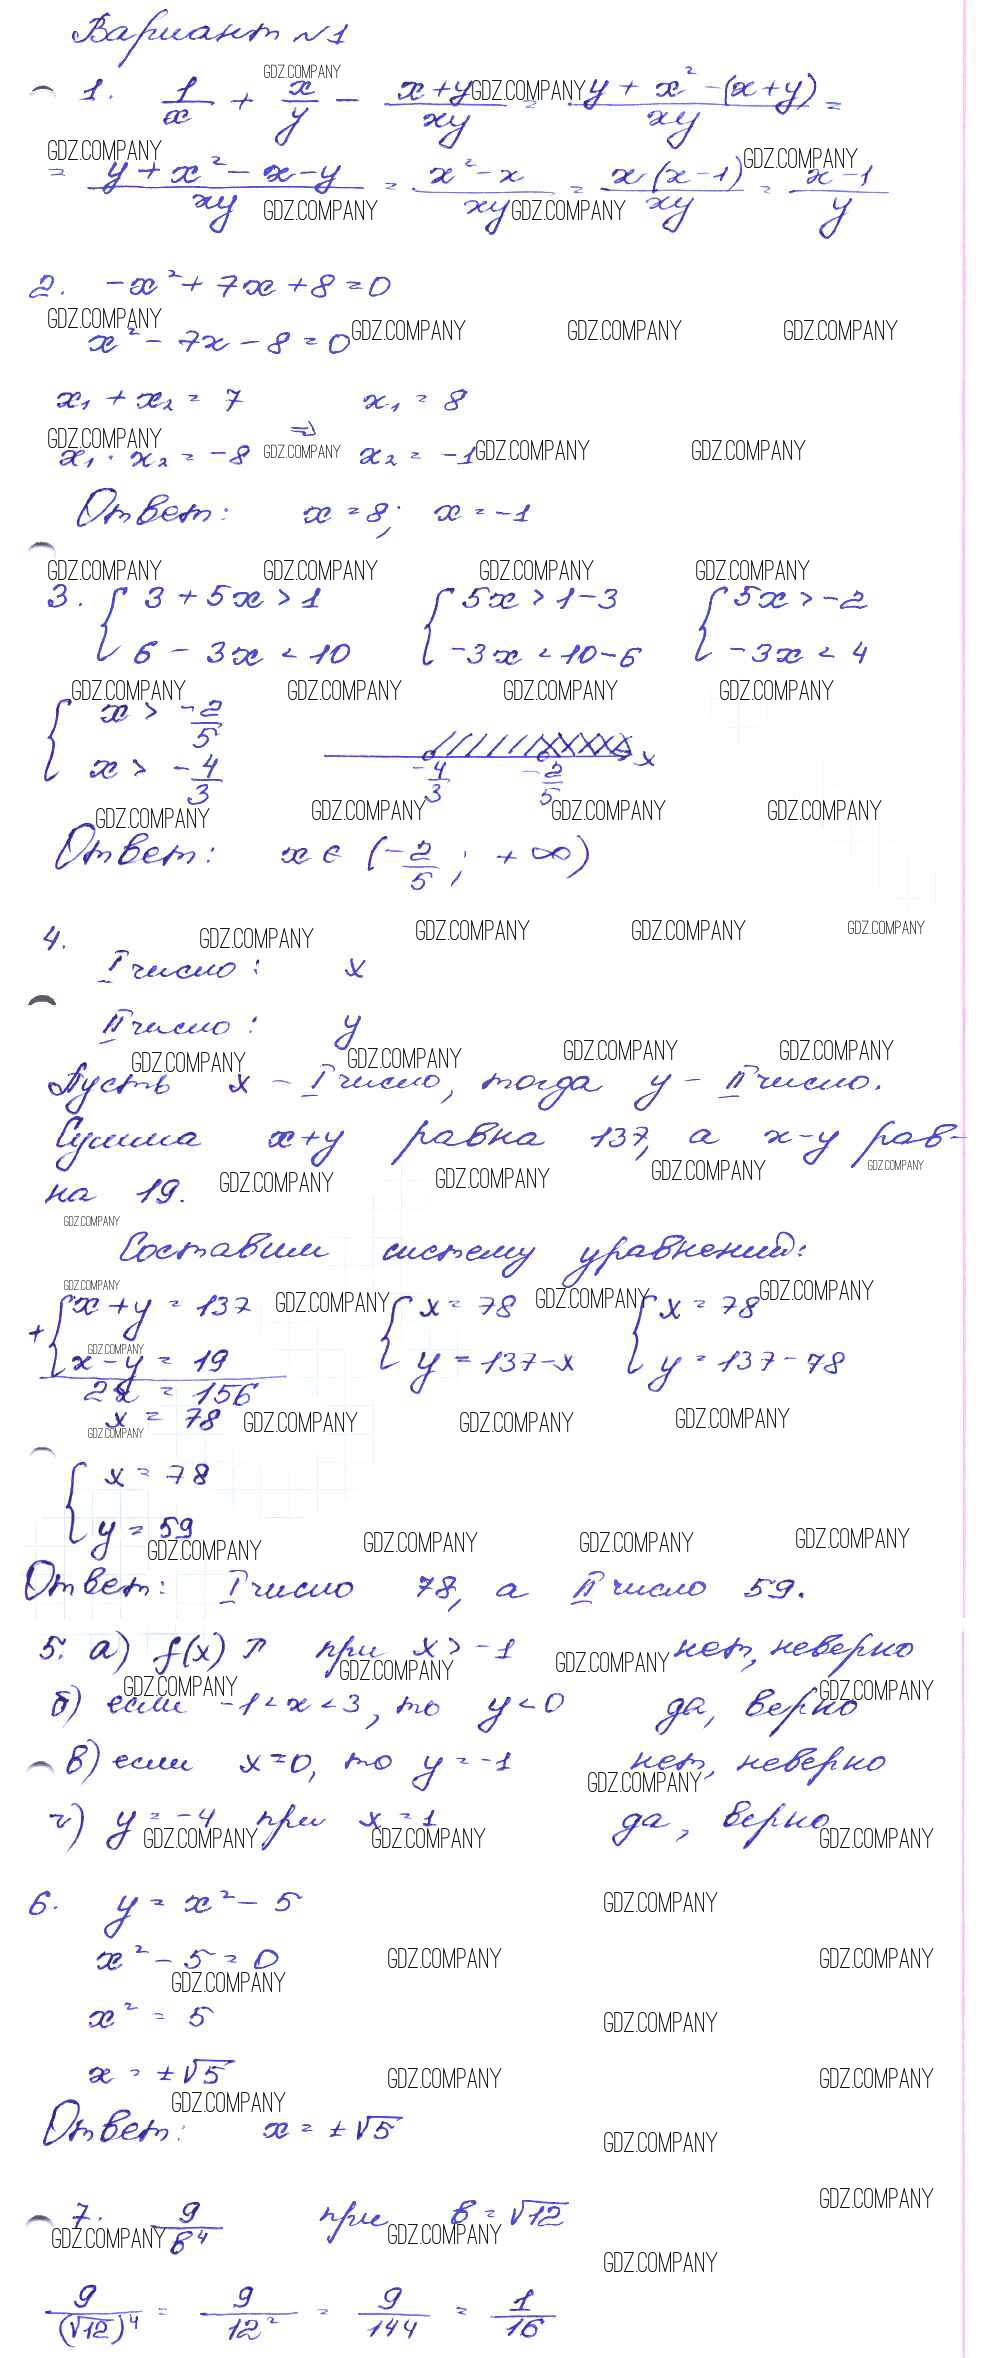 Вариант №1
1. 1/x + x/y - (x+y)/xy = (y + x² - (x+y))/xy =
= (y + x² - x - y)/xy = (x² - x)/xy = x(x-1)/xy = (x-1)/y
2. -x² + 7x + 8 = 0
x² - 7x - 8 = 0
x₁ + x₂ = 7 x₁ = 8
⇒
x₁ · x₂ = -8 x₂ = -1
Ответ: x = 8; x = -1
3. { 3 + 5x > 1 { 5x > 1 - 3 { 5x > -2
6 - 3x < 10 -3x < 10 - 6 -3x < 4
{ x > -2/5
x > -4/3
-4/3 -2/5 x
Ответ: x ∈ (-2/5; +∞)
4.
I число: x
II число: y
Пусть x - I число, тогда y - II число.
Сумма x+y равна 137, а x-y рав-
на 19.
Составим систему уравнений:
+ { x + y = 137 { x = 78 { x = 78
x - y = 19 y = 137 - x y = 137 - 78
2x = 156
x = 78
{ x = 78
y = 59
Ответ: I число 78, а II число 59.
5. а) f(x) ↗ при x > -1 нет, неверно
б) если -1 < x < 3, то y < 0 да, верно
в) если x = 0, то y = -1 нет, неверно
г) y = -4 при x = 1 да, верно
6. y = x² - 5
x² - 5 = 0
x² = 5
x = ±√5
Ответ: x = ±√5
7. 9/в⁴ при в = √12
9/(√12)⁴ = 9/12² = 9/144 = 1/16
GDZ.COMPANY